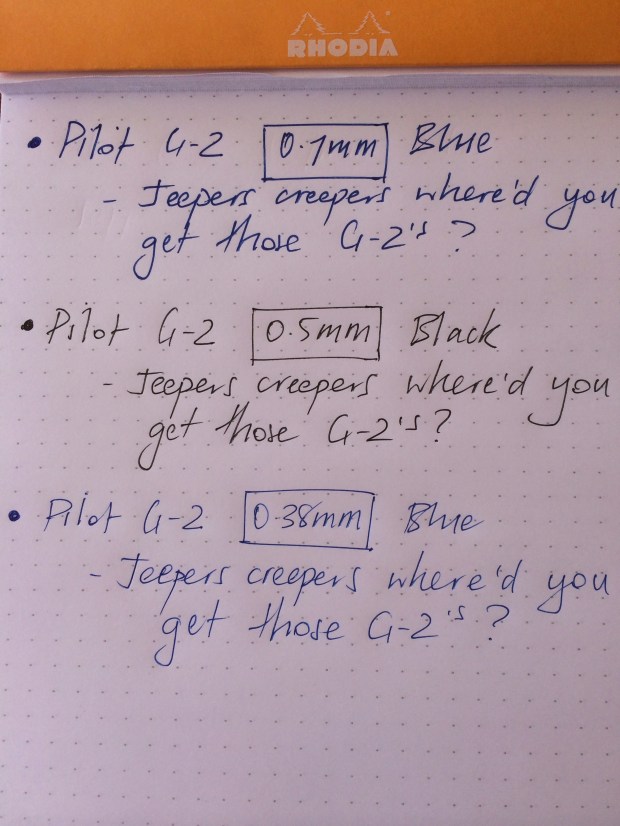 RHODIA
• Pilot G-2 0.7mm Blue
- Jeepers creepers where'd you
get those G-2's?
• Pilot G-2 0.5mm Black
- Jeepers creepers where'd you
get those G-2's?
• Pilot G-2 0.38mm Blue
- Jeepers creepers where'd you
get those G-2's?